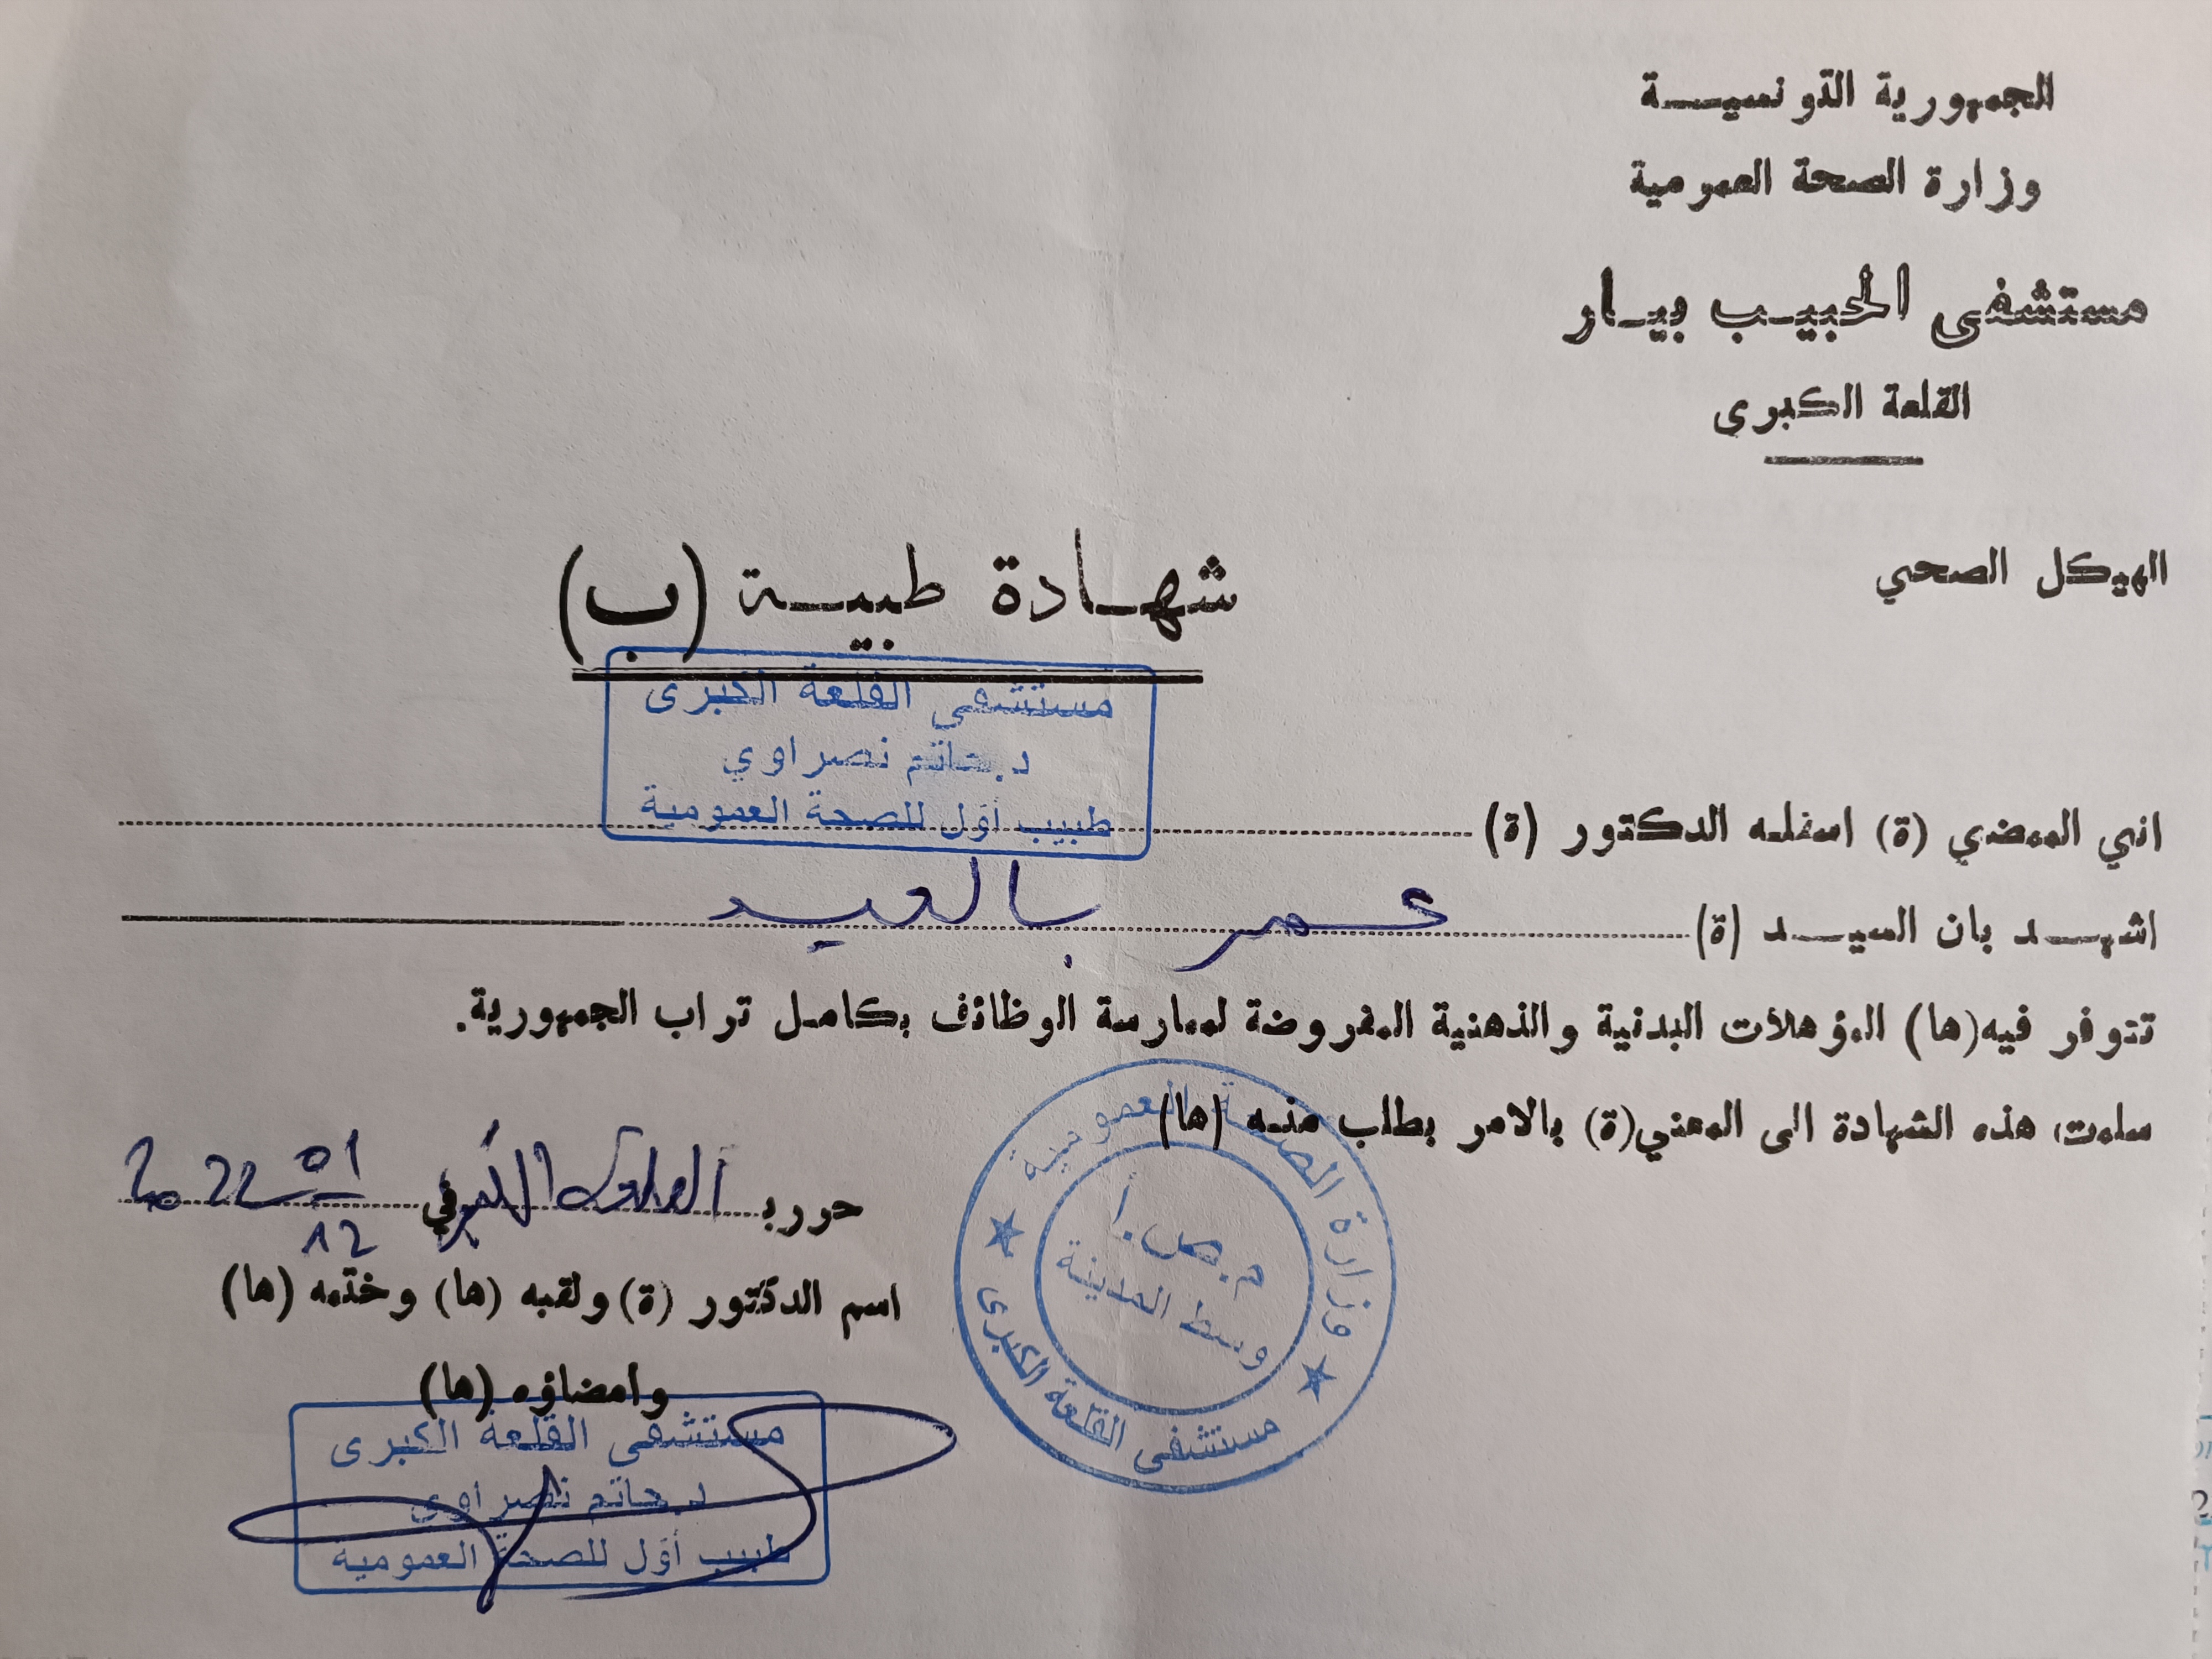 الجمهورية التونسيـــة
وزارة الصحة العمومية
مستشفى الحبيب بيار
القلعة الكبرى
الهيكل الصحي
شهـادة طبيـة (ب)
مستشفى القلعة الكبرى
د.حاتم نصراوي
طبيب أوّل للصحة العمومية
اني الممضي (ة) اسفله الدكتور (ة)
اشهـد بان السيـد (ة) عمر بالعيد
تتوفر فيه(ها) المؤهلات البدنية والذهنية المفروضة لممارسة الوظائف بكامل تراب الجمهورية.
سلمت هذه الشهادة الى المعني(ة) بالامر بطلب منه (ها)
حرر بـ القلعة الكبرى في 01 12 2022
وزارة الصحة العمومية
م.ص.أ
وسط المدينة
مستشفى القلعة الكبرى
اسم الدكتور (ة) ولقبه (ها) وختمه (ها)
وامضاؤه (ها)
مستشفى القلعة الكبرى
د.حاتم نصراوي
طبيب أوّل للصحة العمومية